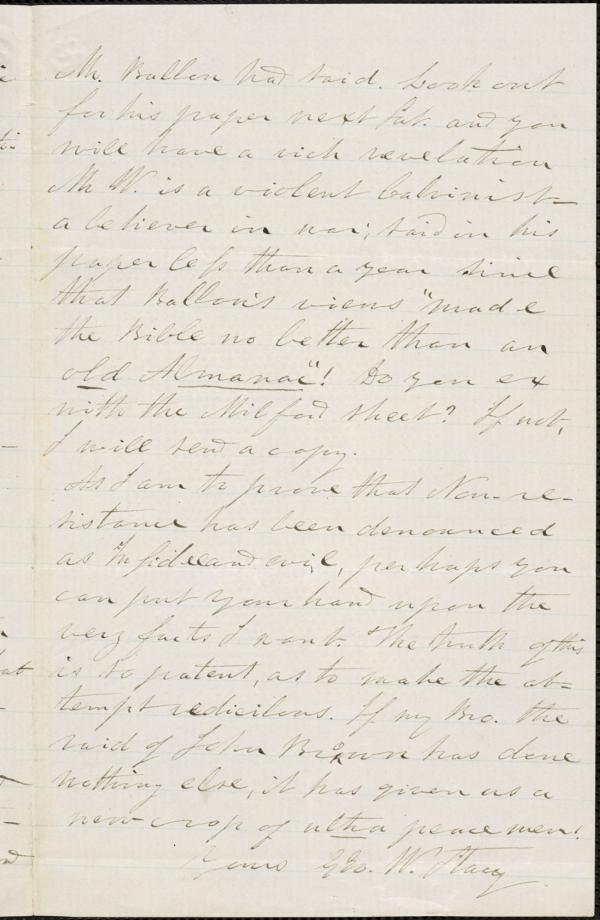 Mr. Ballou had said. Look out
for his paper next Sat. and you
will have a rich revelation
Mr W. is a violent Calvinist—
a believer in war; said in his
paper less than a year since
that Ballou's views "made
the Bible no better than an
old Almanac"! Do you ex
with the Milford sheet? If not,
I will send a copy.
As I am to prove that Non-re-
sistance has been denounced
as Infidel and evil, perhaps you
can put your hand upon the
very facts I want. The truth of this
is so patent, as to make the at-
tempt rediculous. If my Bro. the
raid of John Brown has done
nothing else, it has given us a
new crop of ultra peace men!
Yours Geo. W. Stacy